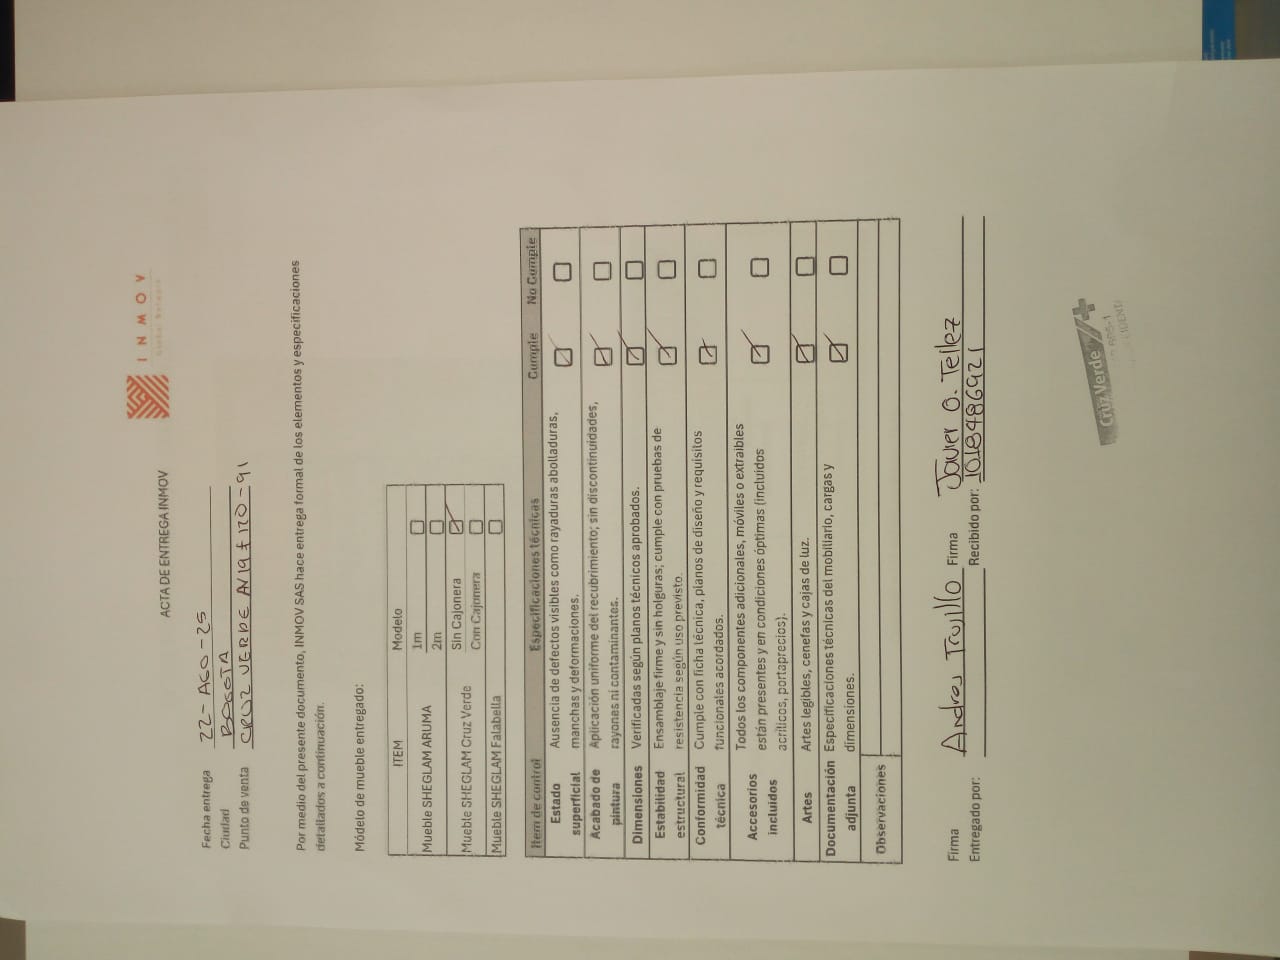 INMOV
ACTA DE ENTREGA INMOV
Fecha entrega 22-AGO-25
Ciudad BOGOTA
Punto de venta CRUZ VERDE AV19 # 120-91
Por medio del presente documento, INMOV SAS hace entrega formal de los elementos y especificaciones
detallados a continuación.
Módelo de mueble entregado:
ITEM Modelo
Mueble SHEGLAM ARUMA 1m
2m
Mueble SHEGLAM Cruz Verde Sin Cajonera
Con Cajonera
Mueble SHEGLAM Falabella
Item de control Especificaciones técnicas Cumple No Cumple
Estado superficial Ausencia de defectos visibles como rayaduras abolladuras,
manchas y deformaciones.
Acabado de pintura Aplicación uniforme del recubrimiento; sin discontinuidades,
rayones ni contaminantes.
Dimensiones Verificadas según planos técnicos aprobados.
Estabilidad estructural Ensamblaje firme y sin holguras; cumple con pruebas de
resistencia según uso previsto.
Conformidad técnica Cumple con ficha técnica, planos de diseño y requisitos
funcionales acordados.
Accesorios incluidos Todos los componentes adicionales, móviles o extraíbles
están presentes y en condiciones óptimas (incluidos
acrílicos, portaprecios).
Artes Artes legibles, cenefas y cajas de luz.
Documentación adjunta Especificaciones técnicas del mobiliario, cargas y
dimensiones.
Observaciones
Firma Andres Trujillo Firma Javier O. Tellez
Entregado por: Recibido por: 1018486921
Cruz Verde